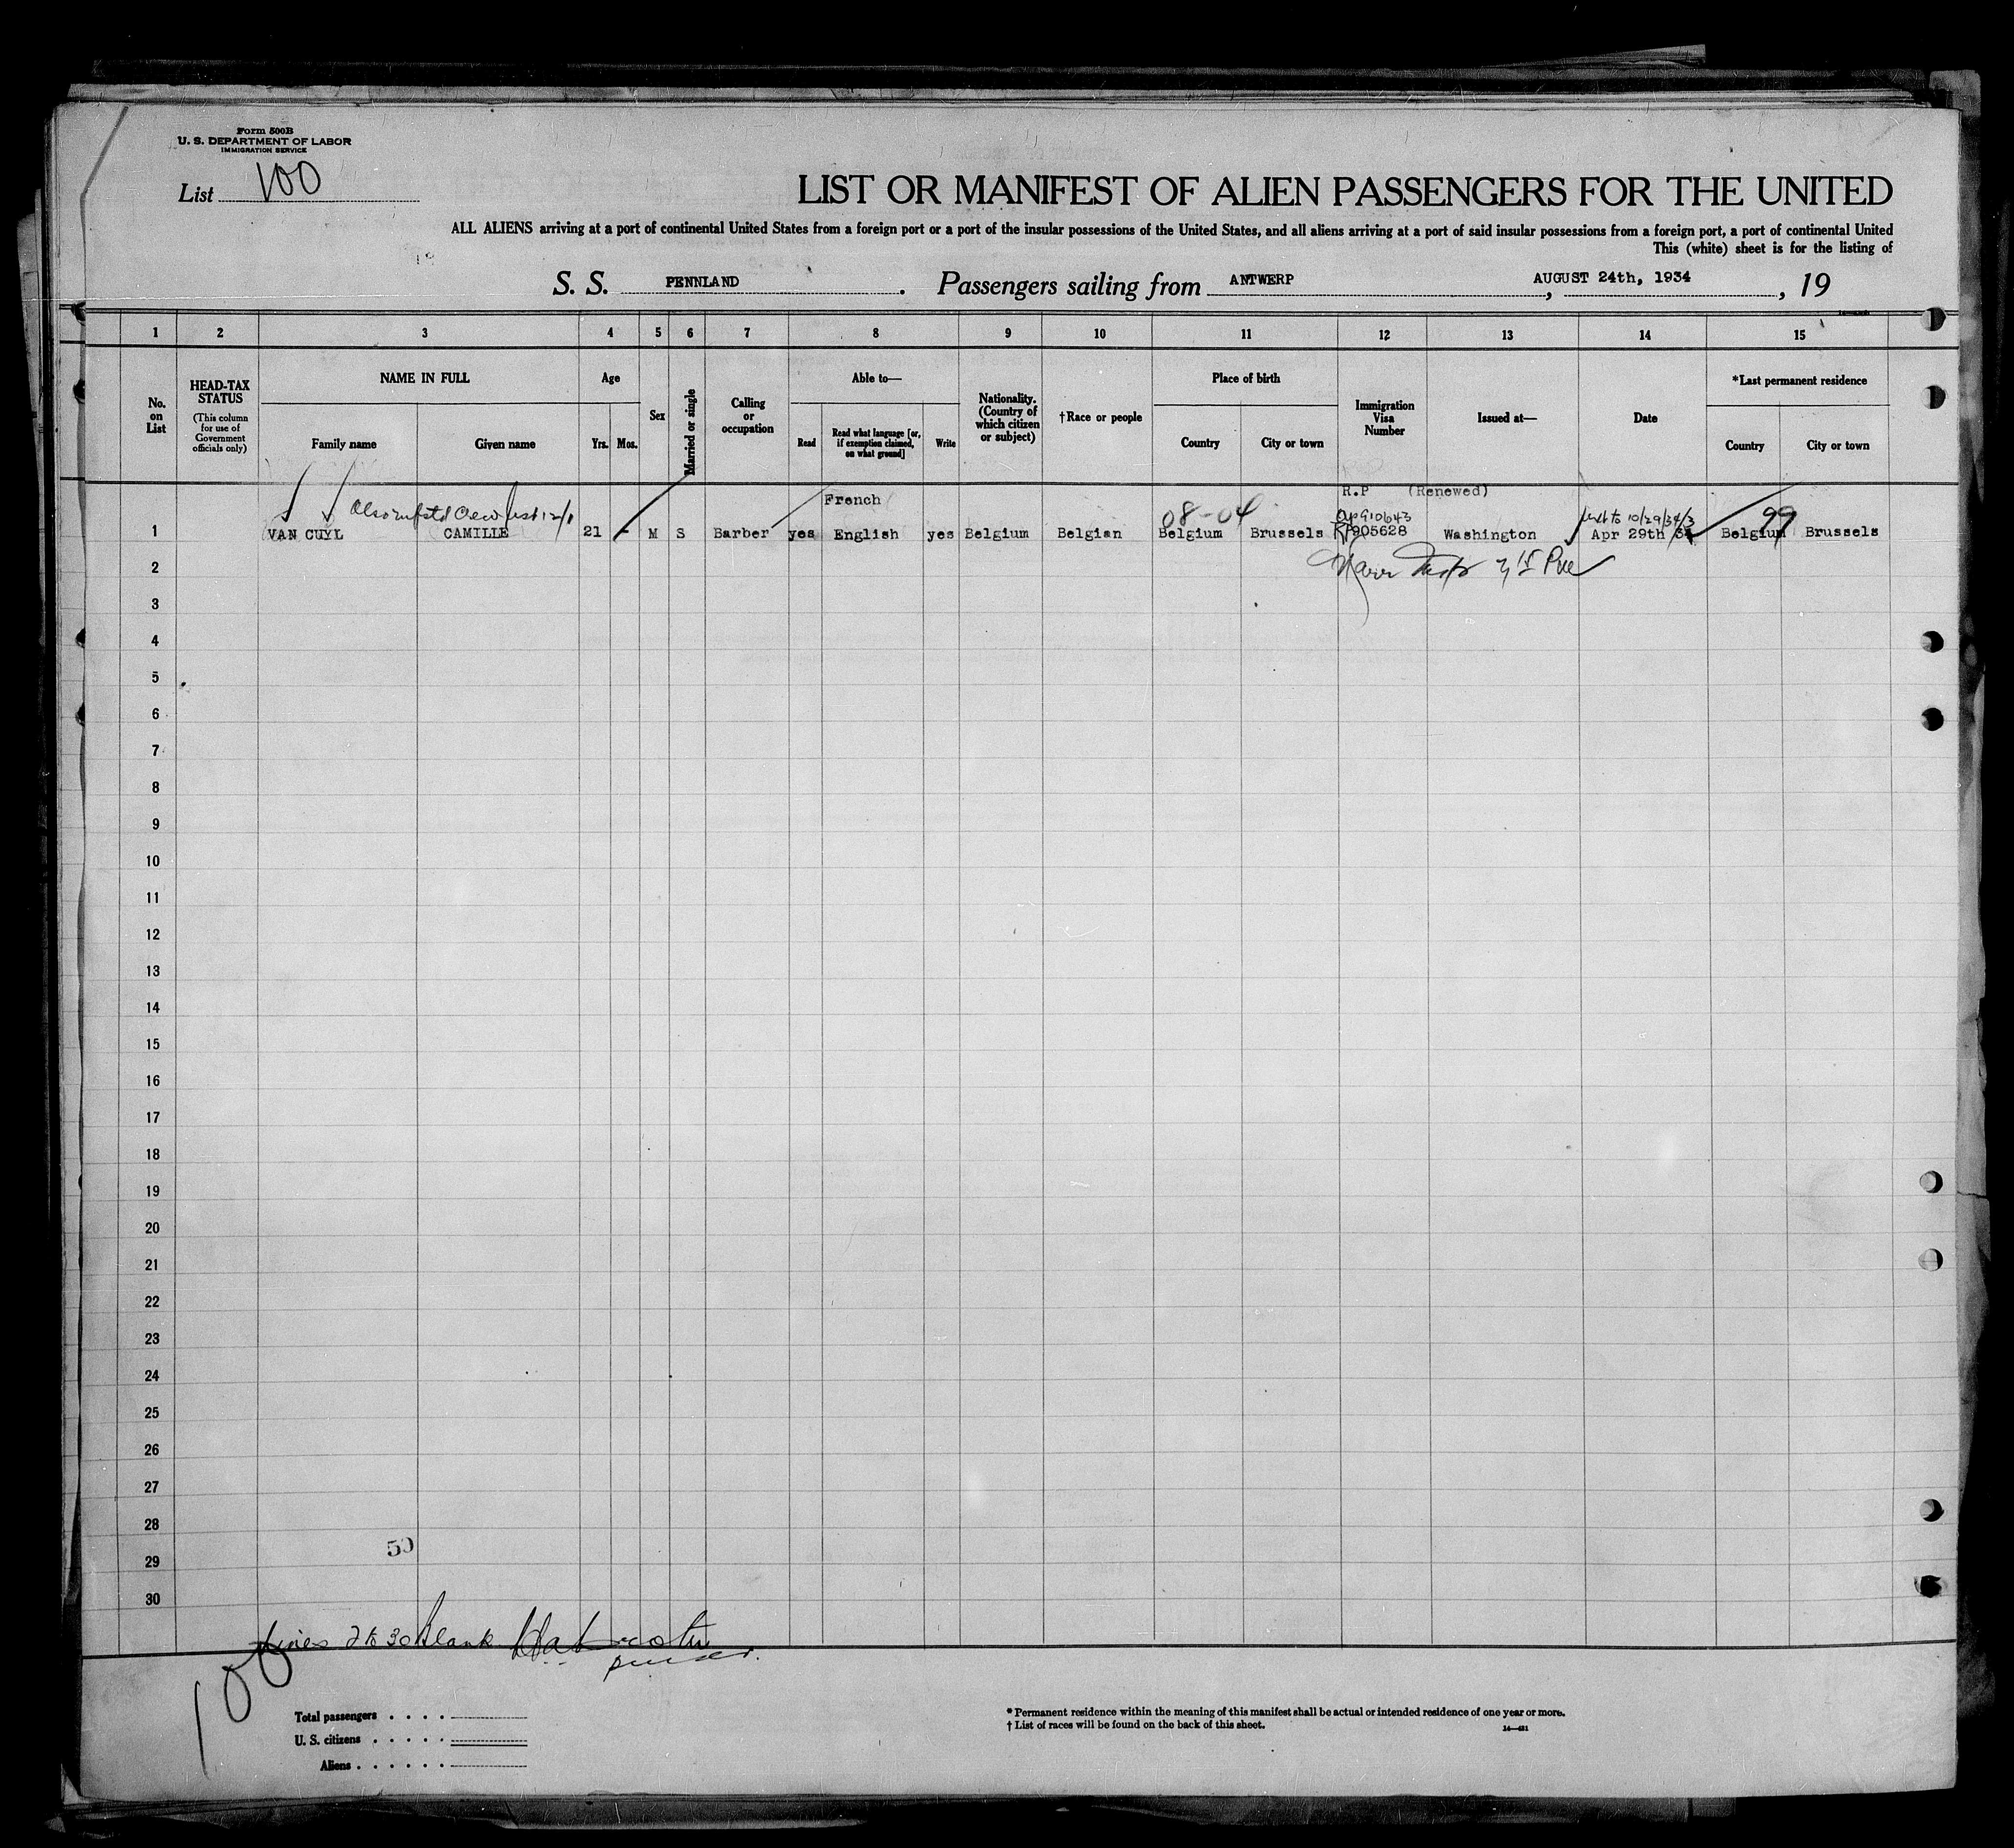 Form 500B
U. S. DEPARTMENT OF LABOR
IMMIGRATION SERVICE
List 100
LIST OR MANIFEST OF ALIEN PASSENGERS FOR THE UNITED
ALL ALIENS arriving at a port of continental United States from a foreign port or a port of the insular possessions of the United States, and all aliens arriving at a port of said insular possessions from a foreign port, a port of continental United
This (white) sheet is for the listing of
S. S. PENNLAND. Passengers sailing from ANTWERP, AUGUST 24th, 1934, 19
1 2 3 4 5 6 7 8 9 10 11 12 13 14 15
No. on List
HEAD-TAX STATUS
(This column for use of Government officials only)
NAME IN FULL
Family name
Given name
Age
Yrs.
Mos.
Sex
Married or single
Calling or occupation
Able to—
Read
Read what language [or, if exemption claimed, on what ground]
Write
Nationality. (Country of which citizen or subject)
†Race or people
Place of birth
Country
City or town
Immigration Visa Number
Issued at—
Date
*Last permanent residence
Country
City or town
French
R.P (Renewed)
08-04
99
1 VAN CUYL CAMILLE 21 - M S Barber yes English yes Belgium Belgian Belgium Brussels RP905628 Washington Apr 29th 34 Belgium Brussels
2
3
4
5
6
7
8
9
10
11
12
13
14
15
16
17
18
19
20
21
22
23
24
25
26
27
28
50
29
30
Lines 2 to 30 blank
purser.
100
Total passengers
U. S. citizens
Aliens
* Permanent residence within the meaning of this manifest shall be actual or intended residence of one year or more.
† List of races will be found on the back of this sheet.
14—481